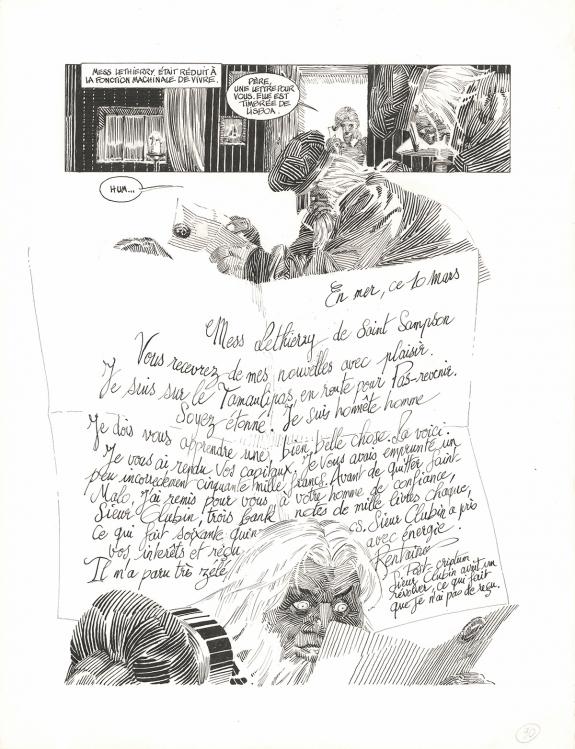 MESS LETHIERRY ÉTAIT RÉDUIT À
LA FONCTION MACHINALE DE VIVRE.
PÈRE,
UNE LETTRE POUR
VOUS. ELLE EST
TIMBRÉE DE
LISBOA.
HUM...
En mer, ce 10 Mars
Mess Lethierry de Saint Sampson
Vous recevrez de mes nouvelles avec plaisir.
Je suis sur le Tamaulipas, en route pour Pas-revenir.
Soyez étonné. Je suis honnête homme
Je dois vous apprendre une bien belle chose. La voici.
Je vous ai rendu vos capitaux. Je vous avais emprunté un
peu incorrectement cinquante mille francs. Avant de quitter Saint-
Malo, j'ai remis pour vous à votre homme de confiance,
Sieur Clubin, trois bank notes de mille livres chaque,
ce qui fait soixante quin s. Sieur Clubin a pris
vos intérêts et reçu avec énergie.
Il m'a paru très zélé,
Rentaine
Post-criptum
Sieur Clubin avait un
révolver, ce qui fait
que je n'ai pas de reçu.